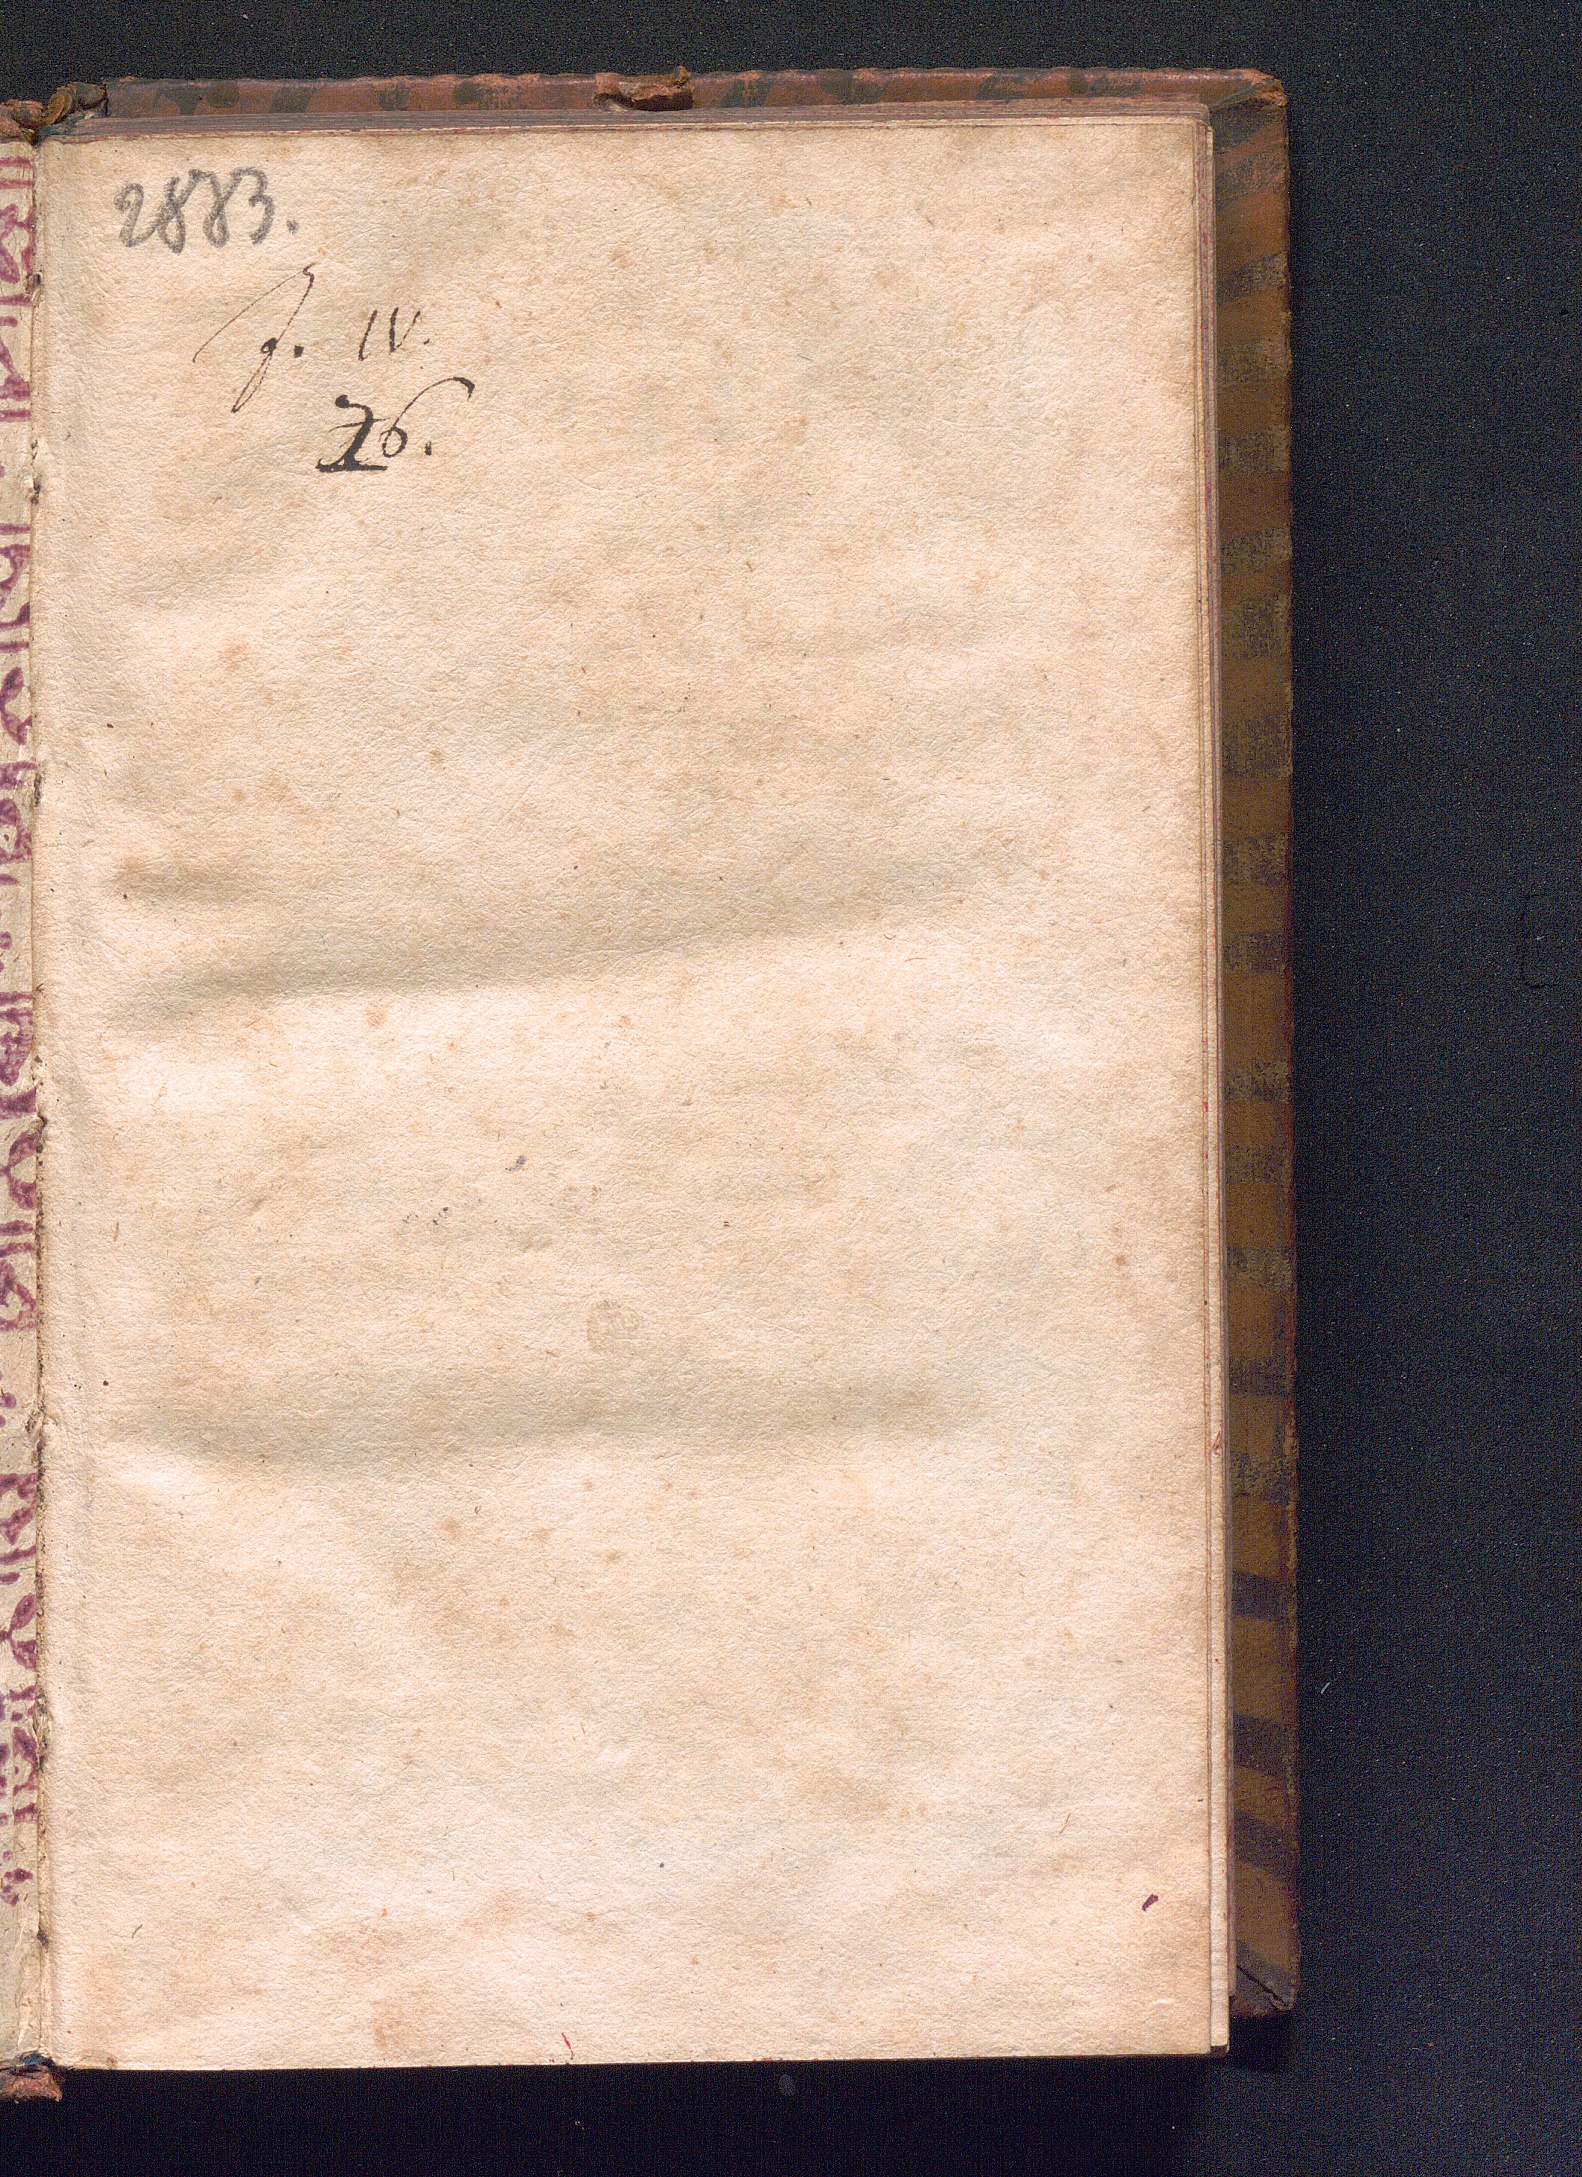 2883.
J. IV.
26.